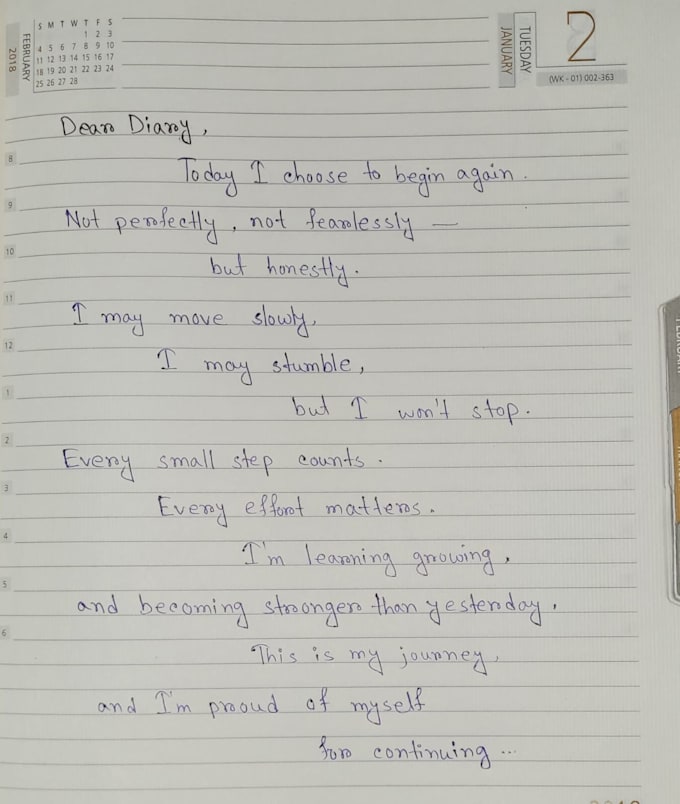 S M T W T F S
1 2 3
4 5 6 7 8 9 10
11 12 13 14 15 16 17
18 19 20 21 22 23 24
25 26 27 28
FEBRUARY
2018
JANUARY
TUESDAY
2
(WK - 01) 002-363
Dear Diary,
8
Today I choose to begin again.
9
Not perfectly, not fearlessly —
10
but honestly.
11
I may move slowly,
12
I may stumble,
1
but I won't stop.
2
Every small step counts.
3
Every effort matters.
4
I'm learning growing,
5
and becoming stronger than yesterday.
6
This is my journey,
and I'm proud of myself
for continuing ...